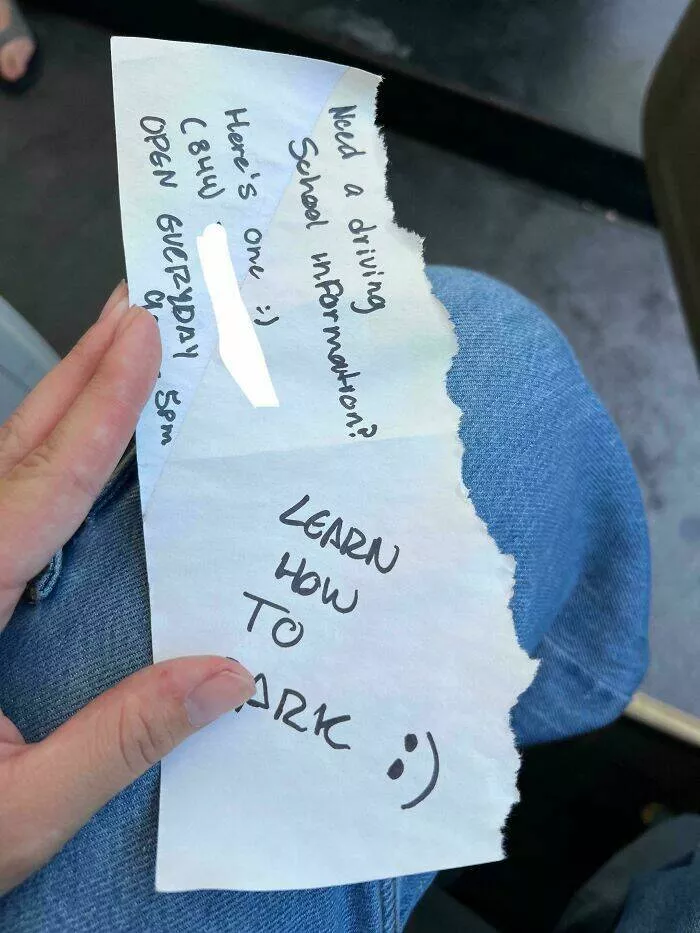 Need a driving
School information?
Here's one :)
(844)
OPEN EVERYDAY
5pm
LEARN
HOW
TO
ARK :)